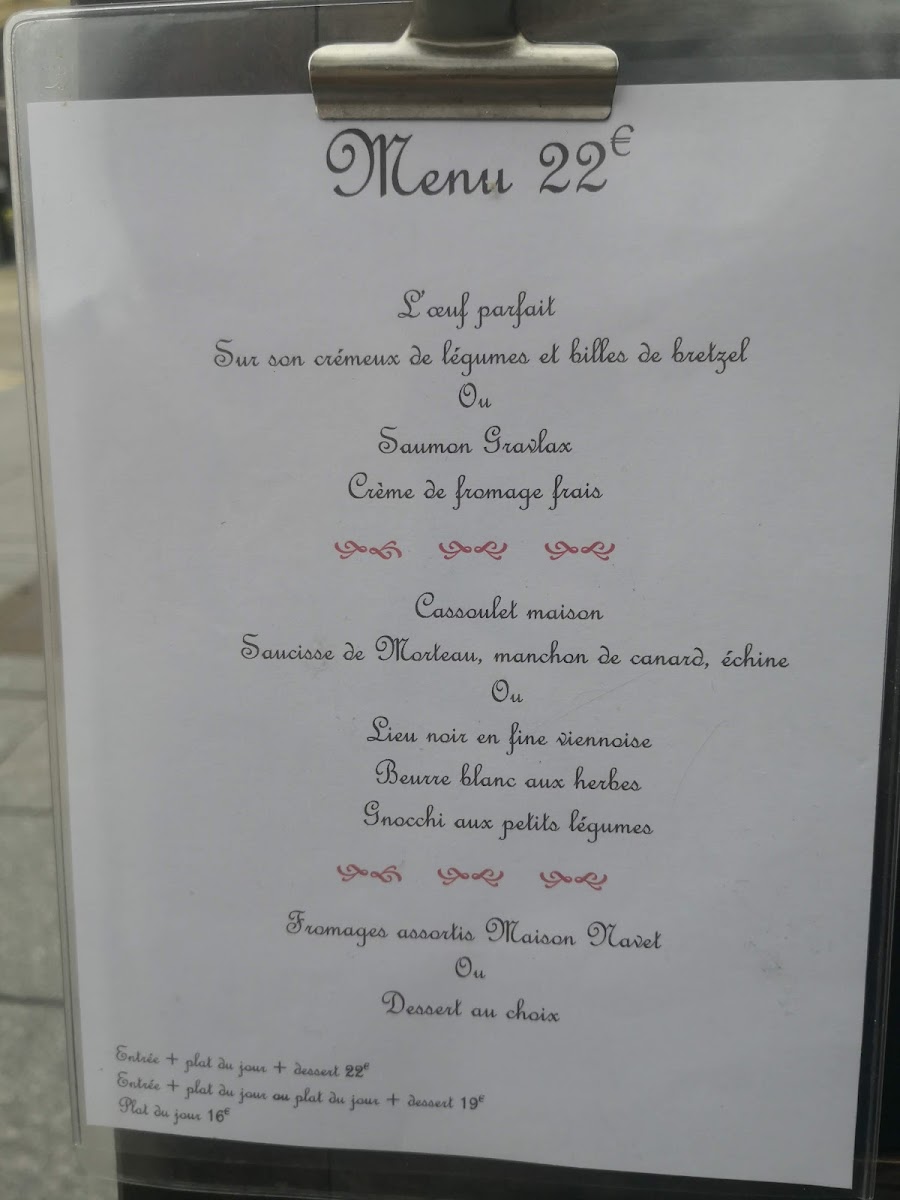 Menu 22€
L'œuf parfait
Sur son crémeux de légumes et billes de bretzel
Ou
Saumon Gravlax
Crème de fromage frais
Cassoulet maison
Saucisse de Morteau, manchon de canard, échine
Ou
Lieu noir en fine viennoise
Beurre blanc aux herbes
Gnocchi aux petits légumes
Fromages assortis Maison Navet
Ou
Dessert au choix
Entrée + plat du jour + dessert 22€
Entrée + plat du jour ou plat du jour + dessert 19€
Plat du jour 16€